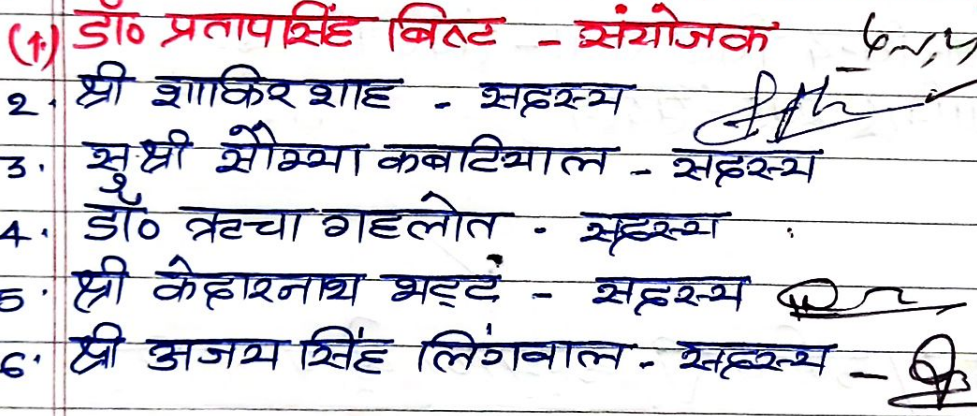 (1) डॉ० प्रतापसिंह बिष्ट - संयोजक
2. श्री शाकिर शाह - सदस्य
3. सुश्री सौम्या कबटियाल - सदस्य
4. डॉ० ऋचा गहलोत - सदस्य
5. श्री केदारनाथ भट्ट - सदस्य
6. श्री अजय सिंह लिंगवाल - सदस्य -